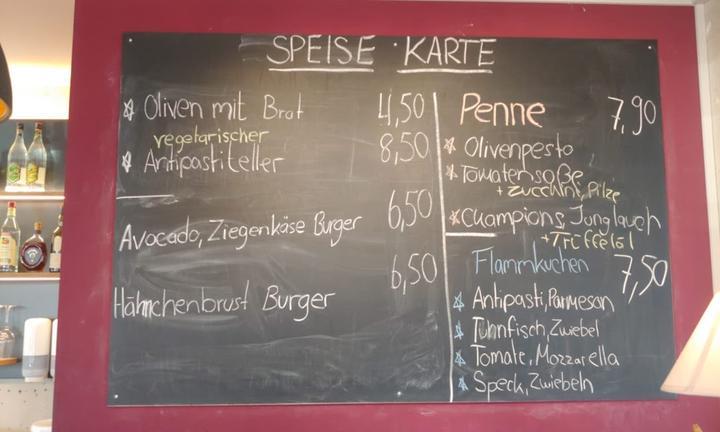 SPEISE · KARTE
Oliven mit Brot 4,50
vegetarischer
Antipastiteller 8,50
Avocado, Ziegenkäse Burger 6,50
Hähnchenbrust Burger 6,50
Penne 7,90
Olivenpesto
Tomatensoße
+ Zucchini, Pilze
Champions, Junglauch
+ Trüffelöl
Flammkuchen 7,50
Antipasti, Parmesan
Tunnfisch, Zwiebel
Tomate, Mozzarella
Speck, Zwiebeln